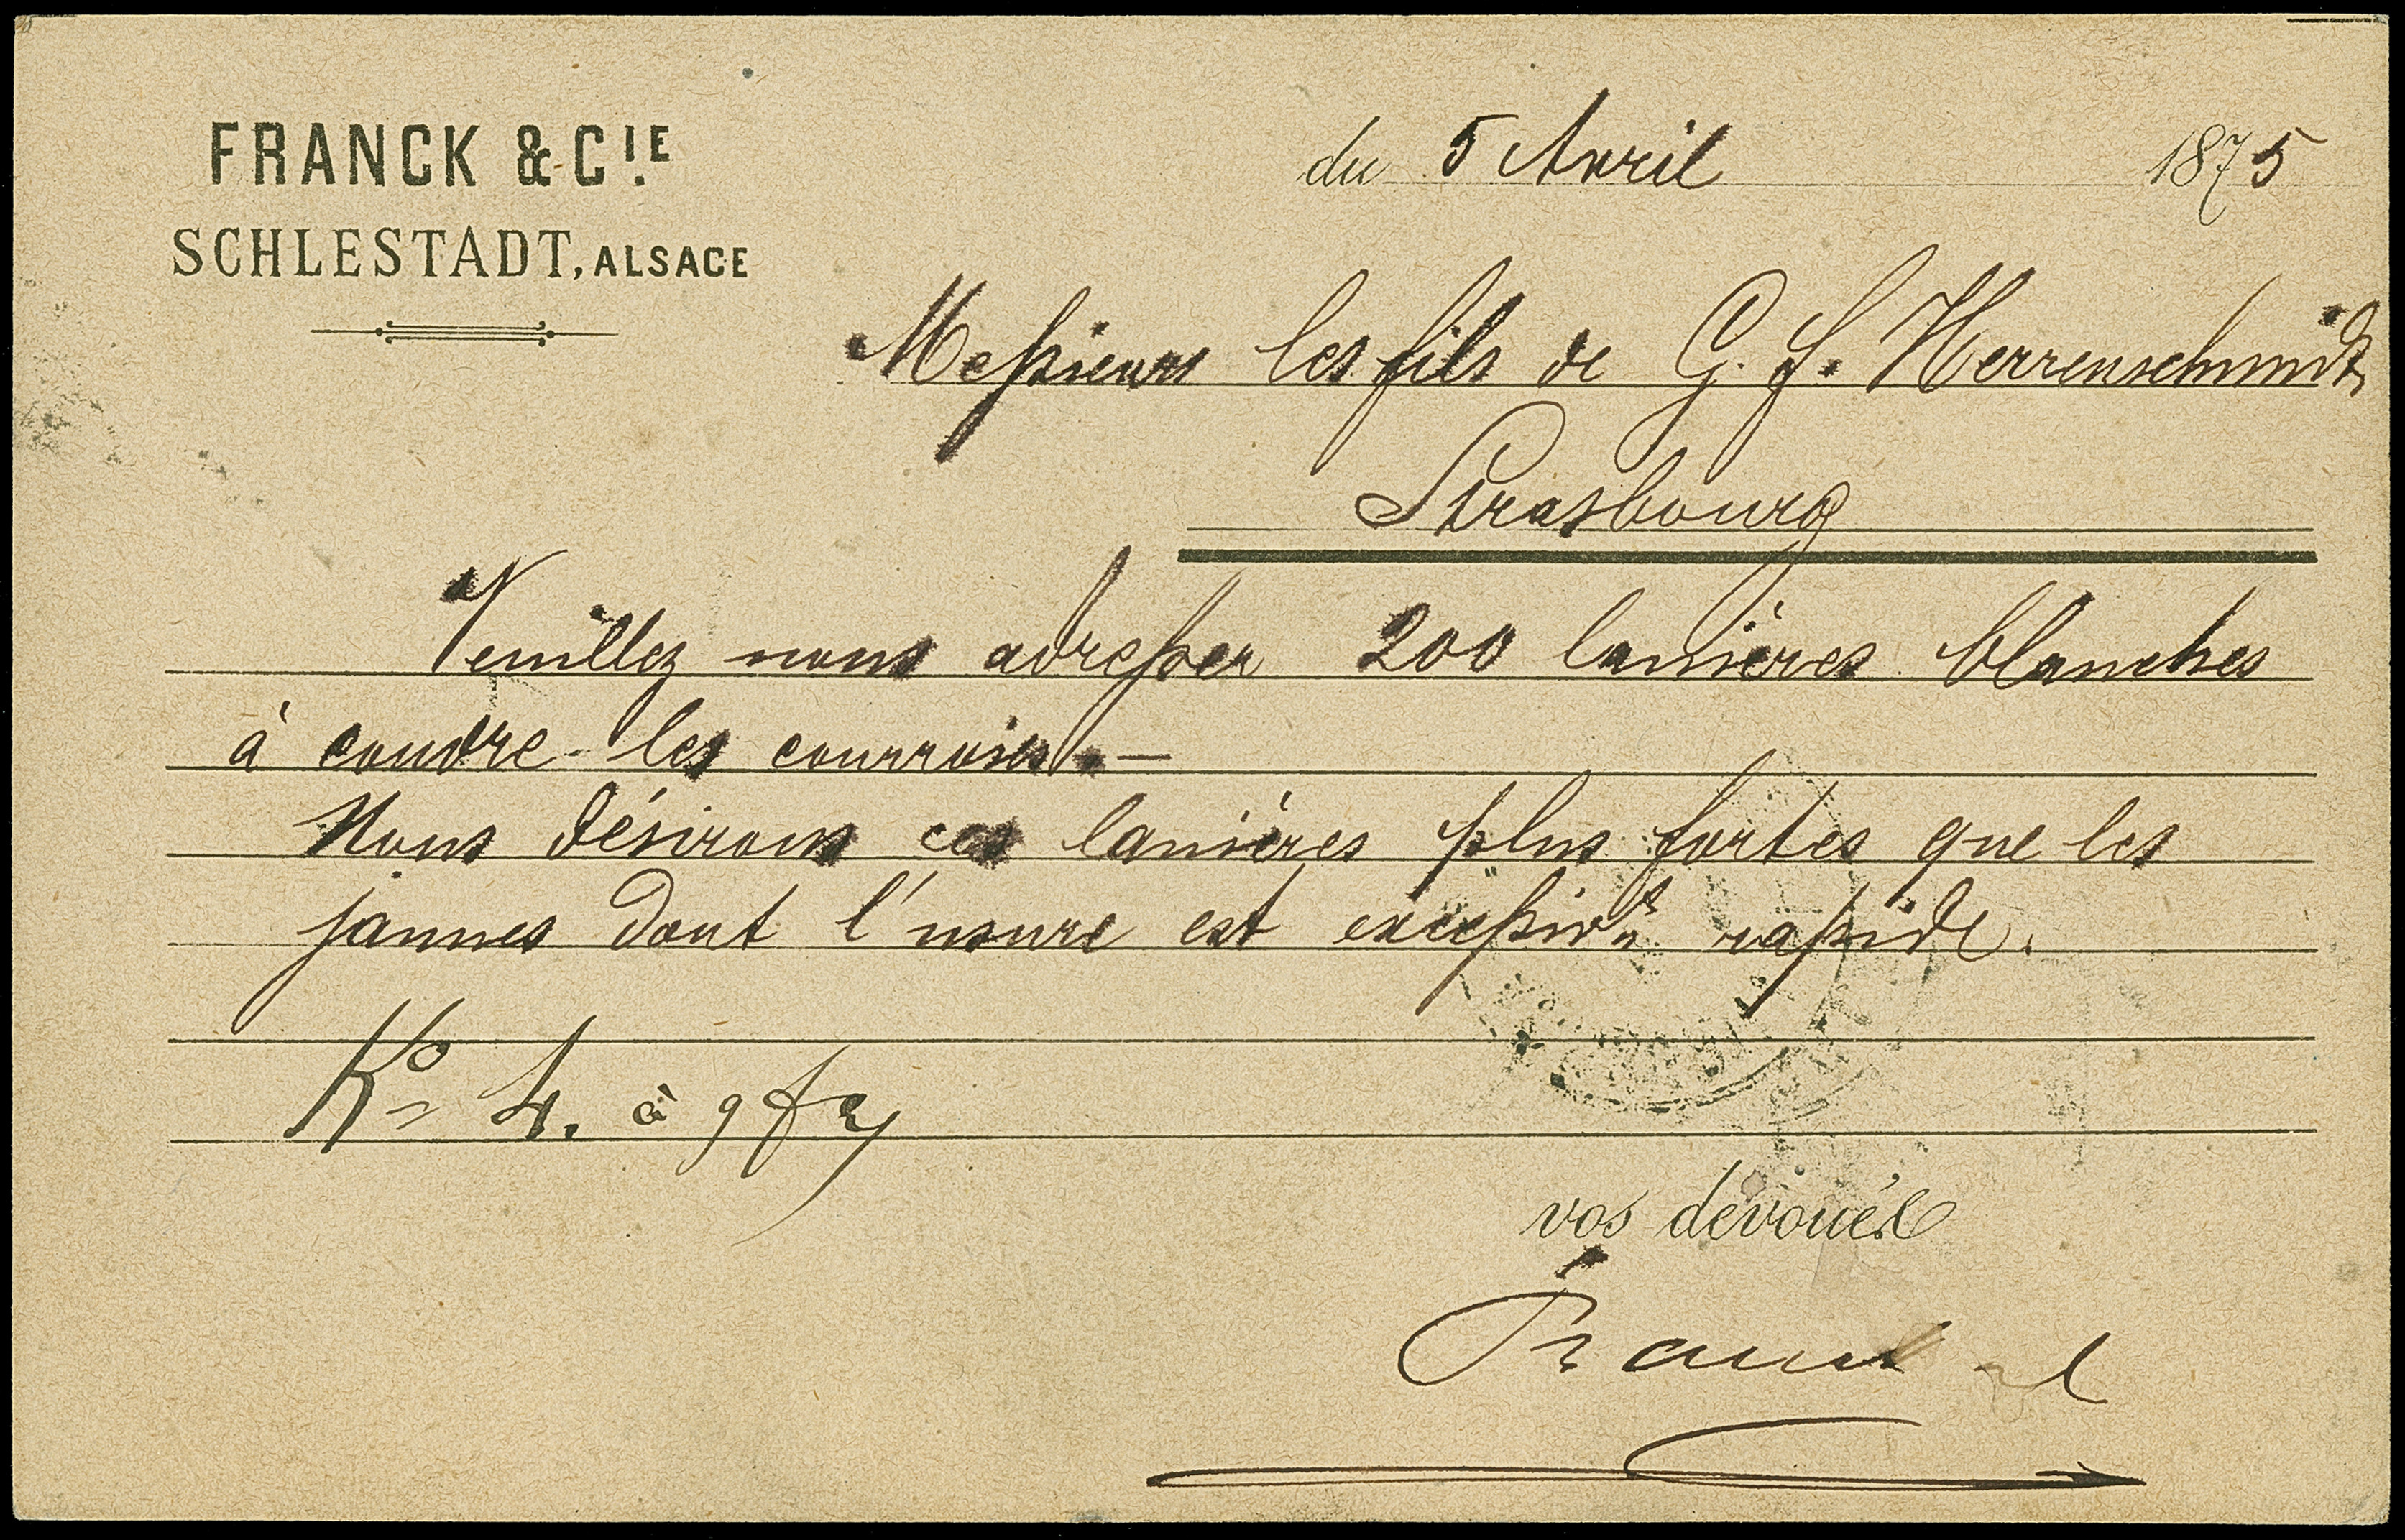 FRANCK & CIE
SCHLESTADT, ALSACE
du 5 Avril 1875
Messieurs les fils de G. F. Herrenschmidt
Strasbourg
Veuillez nous adresser 200 lanières blanches
à coudre les courroies. —
Nous désirons ces lanières plus fortes que les
jaunes dont l'usure est rapide.
Ko 4. à 9 f
vos dévoués
Franck